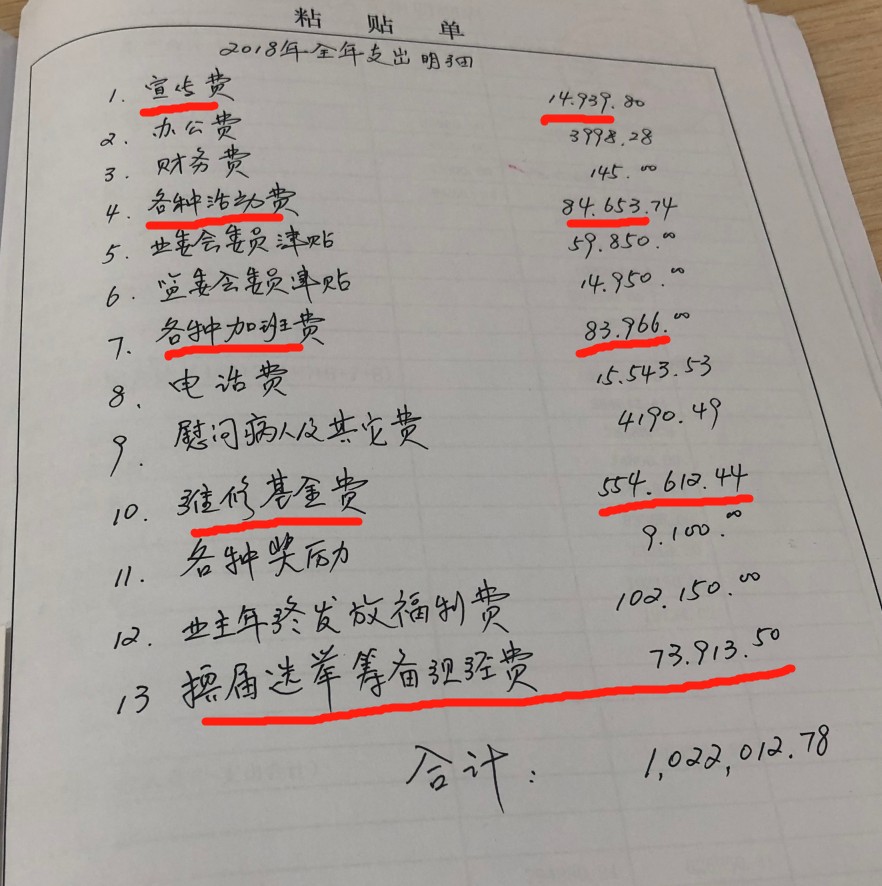 粘贴单
2018年全年支出明细
1. 宣传费 14.939.80
2. 办公费 3998.28
3. 财务费 145.00
4. 各种活动费 84.653.74
5. 业委会委员津贴 59.850.00
6. 监委会委员津贴 14.950.00
7. 各种加班费 83.966.00
8. 电话费 15.543.53
9. 慰问病人及其它费 4190.49
10. 维修基金费 554.612.44
11. 各种奖励 9.100.00
12. 业主年终发放福利费 102.150.00
13 换届选举筹备组经费 73.913.50
合计: 1,022,012.78